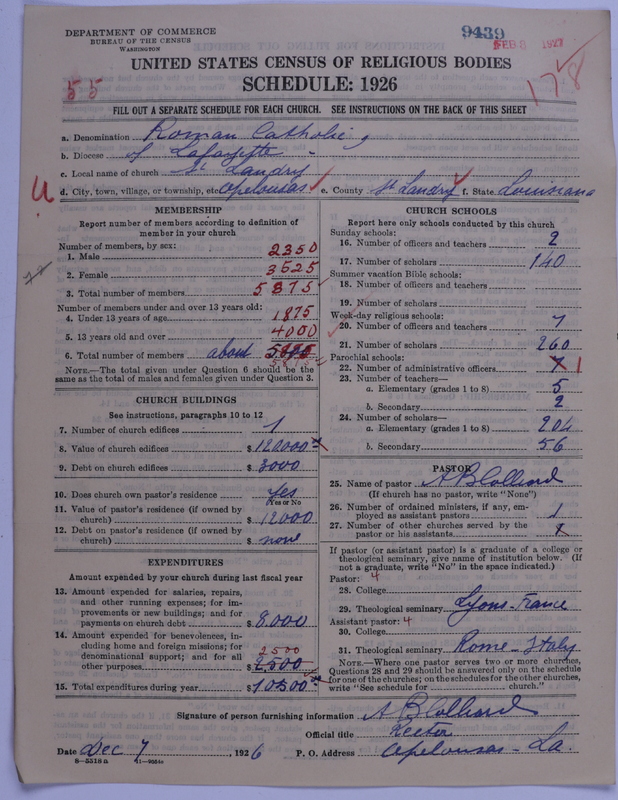 DEPARTMENT OF COMMERCE
BUREAU OF THE CENSUS
WASHINGTON
9439
FEB 8 1927
UNITED STATES CENSUS OF RELIGIOUS BODIES
SCHEDULE: 1926
55
1778
FILL OUT A SEPARATE SCHEDULE FOR EACH CHURCH. SEE INSTRUCTIONS ON THE BACK OF THIS SHEET
a. Denomination Roman Catholic,
b. Diocese of Lafayette
c. Local name of church St Landry
d. City, town, village, or township, etc. Opelousas e. County St Landry f. State Louisiana
MEMBERSHIP
Report number of members according to definition of member in your church
Number of members, by sex:
1. Male 2350
2. Female 3525
3. Total number of members 5875
Number of members under and over 13 years old:
4. Under 13 years of age 1875
5. 13 years old and over 4000
6. Total number of members about 5875
NOTE.—The total given under Question 6 should be the same as the total of males and females given under Question 3.
CHURCH BUILDINGS
See instructions, paragraphs 10 to 12
7. Number of church edifices 1
8. Value of church edifices $ 120000
9. Debt on church edifices $ 3000
10. Does church own pastor's residence Yes
Yes or No
11. Value of pastor's residence (if owned by church) $ 12000
12. Debt on pastor's residence (if owned by church) $ none
EXPENDITURES
Amount expended by your church during last fiscal year
13. Amount expended for salaries, repairs, and other running expenses; for improvements or new buildings; and for payments on church debt $ 8,000
14. Amount expended for benevolences, including home and foreign missions; for denominational support; and for all other purposes 2500
$ 2500
15. Total expenditures during year $ 10500
CHURCH SCHOOLS
Report here only schools conducted by this church
Sunday schools:
16. Number of officers and teachers 2
17. Number of scholars 140
Summer vacation Bible schools:
18. Number of officers and teachers
19. Number of scholars
Week-day religious schools:
20. Number of officers and teachers 7
21. Number of scholars 260
Parochial schools:
22. Number of administrative officers 1
23. Number of teachers—
a. Elementary (grades 1 to 8) 5
b. Secondary 2
24. Number of scholars—
a. Elementary (grades 1 to 8) 204
b. Secondary 56
PASTOR
25. Name of pastor A B Colliard
(If church has no pastor, write "None")
26. Number of ordained ministers, if any, employed as assistant pastors 1
27. Number of other churches served by the pastor or his assistants
If pastor (or assistant pastor) is a graduate of a college or theological seminary, give name of institution below. (If not a graduate, write "No" in the space indicated.)
Pastor: 4
28. College
29. Theological seminary Lyons - France
Assistant pastor: 4
30. College
31. Theological seminary Rome - Italy
NOTE.—Where one pastor serves two or more churches, Questions 28 and 29 should be answered only on the schedule for one of the churches; on the schedules for the other churches, write "See schedule for church."
Signature of person furnishing information A B Colliard
Official title Rector
Date Dec 7, 1926 P. O. Address Opelousas - La.
8—5318a 11—9054c